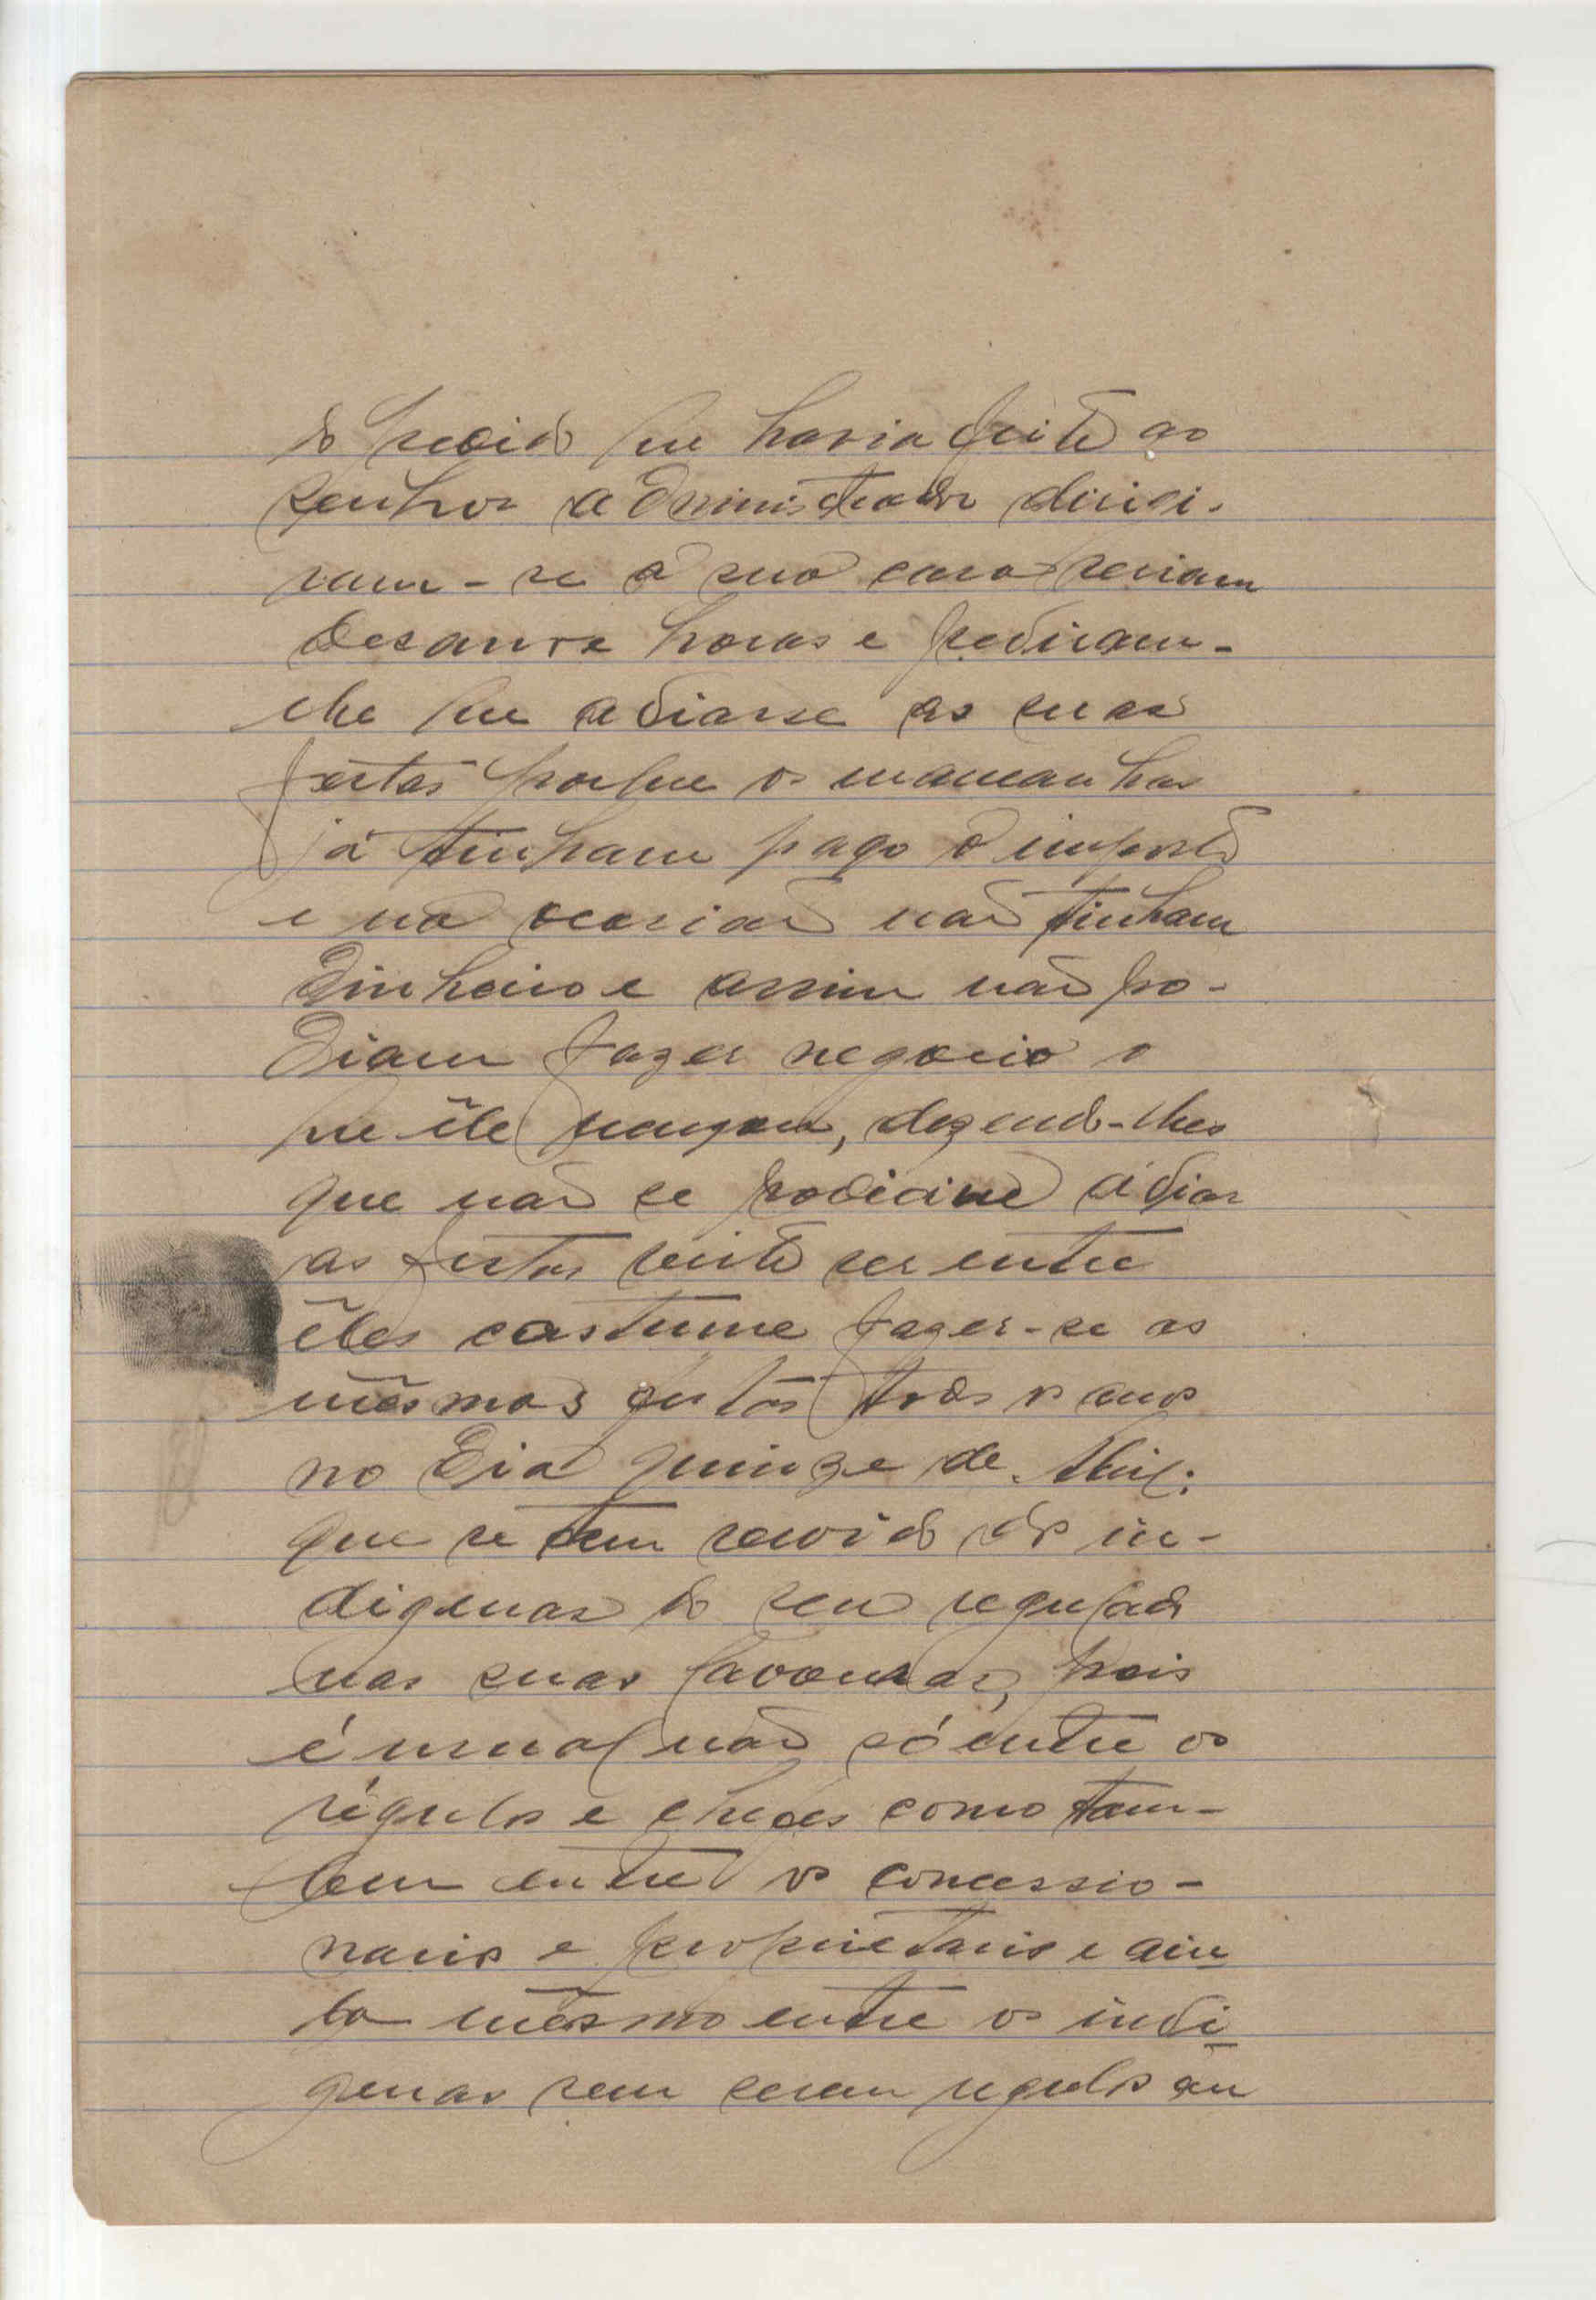 do pedido que havia feito ao
senhor administrador dirigi-
ram-se à sua casa seriam
dezanove horas e pediram-
lhe que adiasse as suas
festas porque os mamanhas
já tinham pago o imposto
e na ocasião não tinham
dinheiro e assim não po-
diam fazer negocio o
que êle negou, dezendo-lhes
que não se podia adiar
as festas visto ser entre
êles costume fazer-se as
mêsmas festas todos os anos
no dia quinze de Abril;
que se tem servido dos in-
digenas do seu regulado
nas suas lavouras, pois
é usual não só entre os
régulos e chefes como tam-
bem entre os concessio-
narios e proprietarios e ain
da mêsmo entre os indi
genas sem serem regulos ou